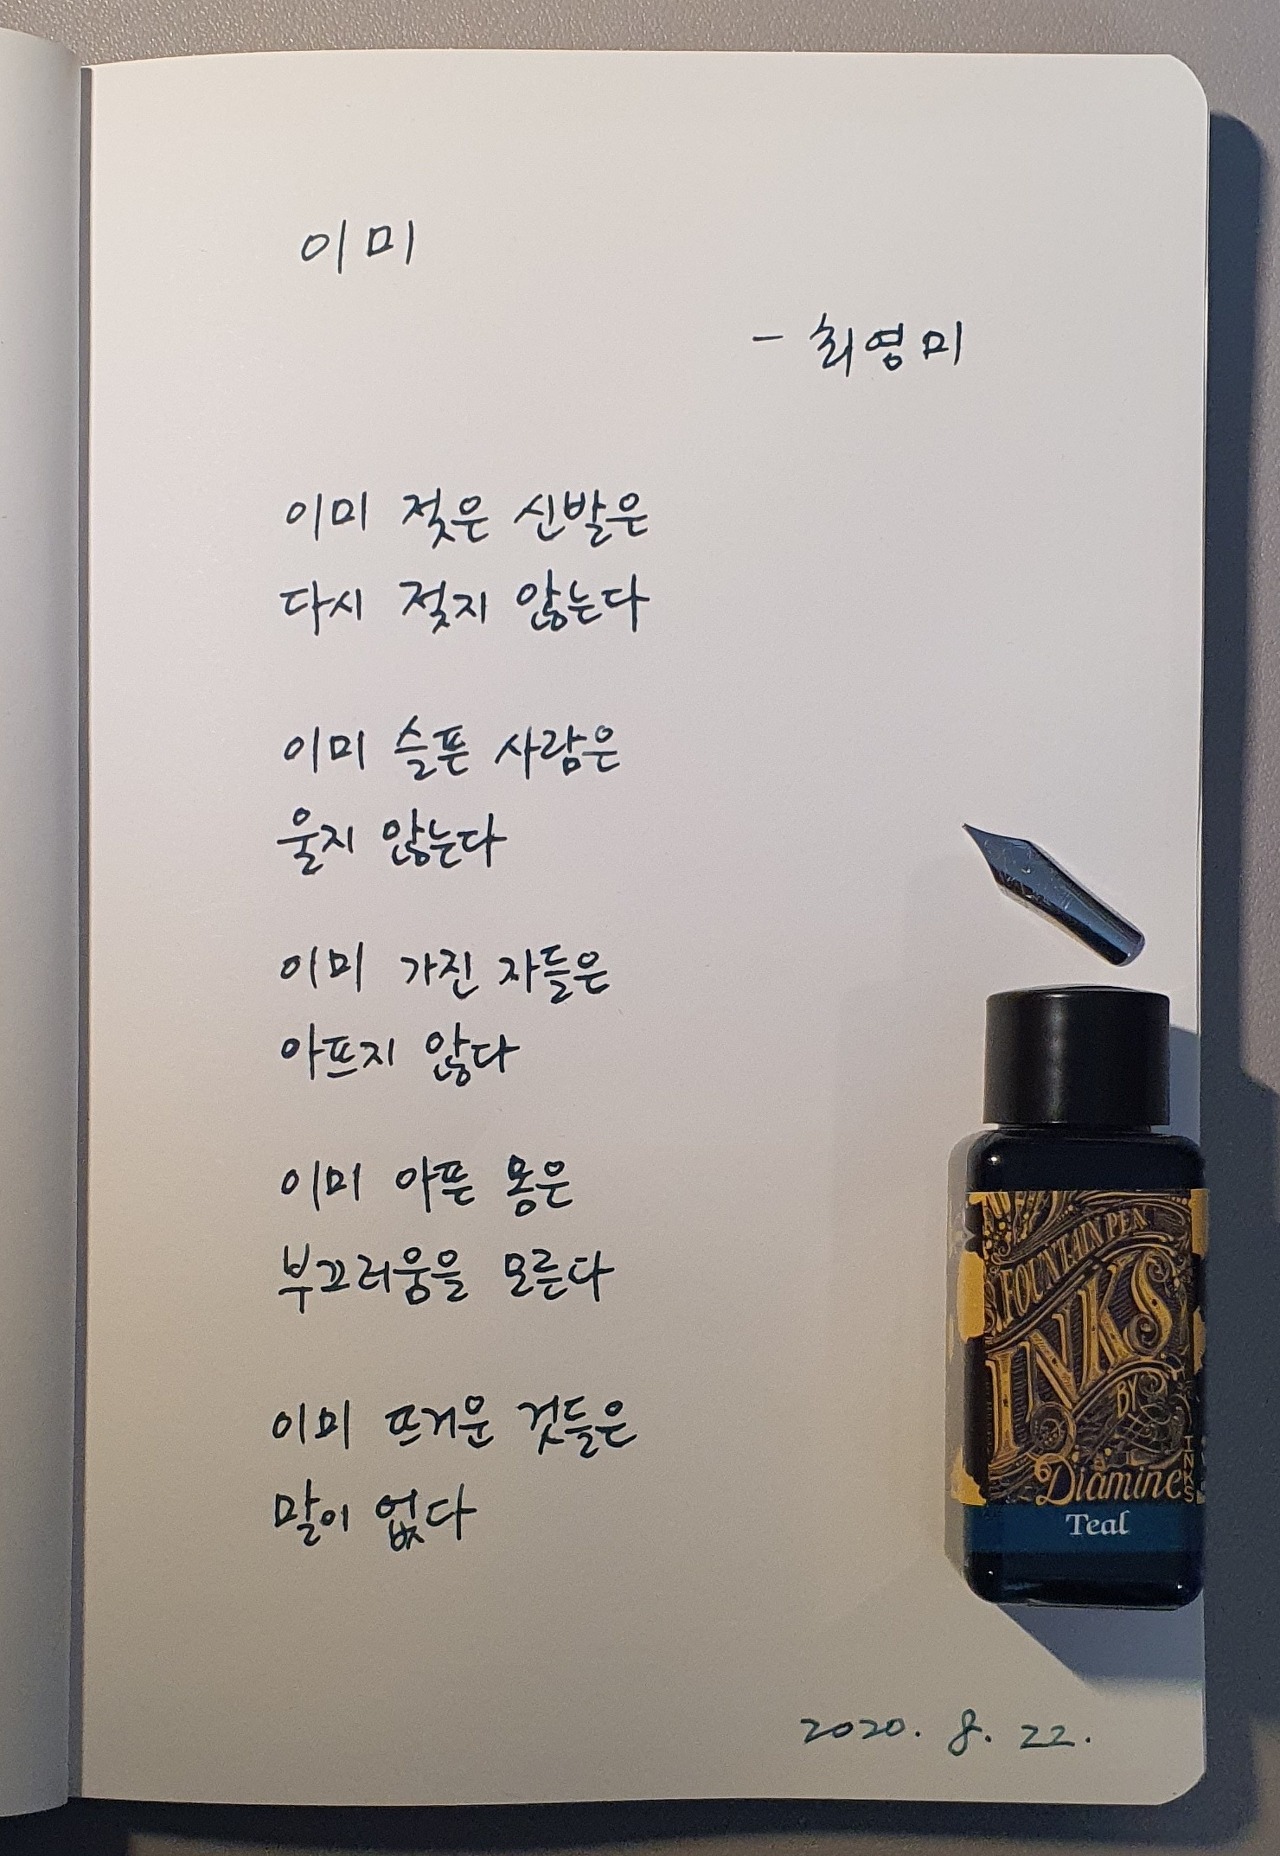 이미
- 최영미
이미 젖은 신발은
다시 젖지 않는다
이미 슬픈 사람은
울지 않는다
이미 가진 자들은
아프지 않다
이미 아픈 몸은
부끄러움을 모른다
이미 뜨거운 것들은
말이 없다
FOUNTAIN PEN
INKS
BY
Diamine
INKS
Teal
2020. 8. 22.